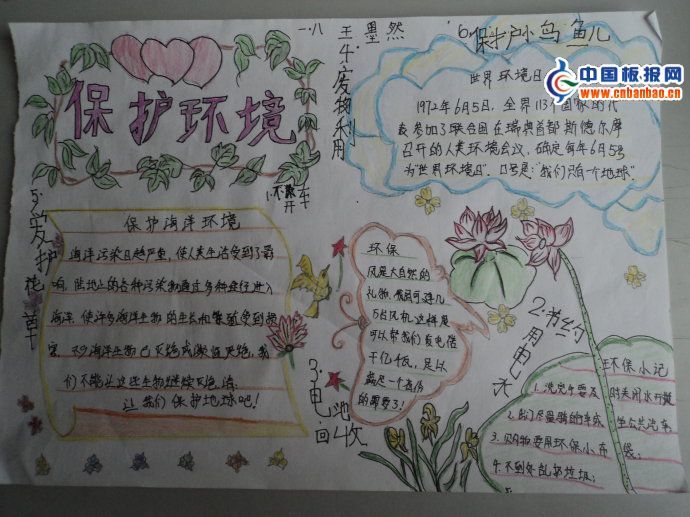 一.八
王墨然
6.保护小鸟鱼儿
中国板报网
www.cnbanbao.cn
保护环境
4.废物利用
1.不开车
世界环境日
1972年6月5日，全界113个国家的代
表参加了联合国在瑞典首都斯德尔摩
召开的人类环境会议，确定每年6月5号
为"世界环境日"。口号是："我们只有一个地球"
5.爱护花草
保护海洋环境
海洋污染日趋严重，使人类生活受到了影
响，陆地上的各种污染物通过多种途径进入
海洋，使许多海洋生物的生长和繁殖受到损
害，不少海洋生物已灭绝或濒临灭绝，我
们不能让这些生物继续灭绝
让我们保护地球吧！
环保
风是大自然的
礼物，据风可连几
5台风机这样是
可以帮我们发电偿
千亿千瓦，足以
满足一个省份
的需要了！
3.电池回收
2.节约用电水
环保小记
1.洗完手要及时关闭水开关
2.我们尽量骑自行车或坐公共汽车
3.购物要用环保小布袋；
4.不到处乱扔垃圾；